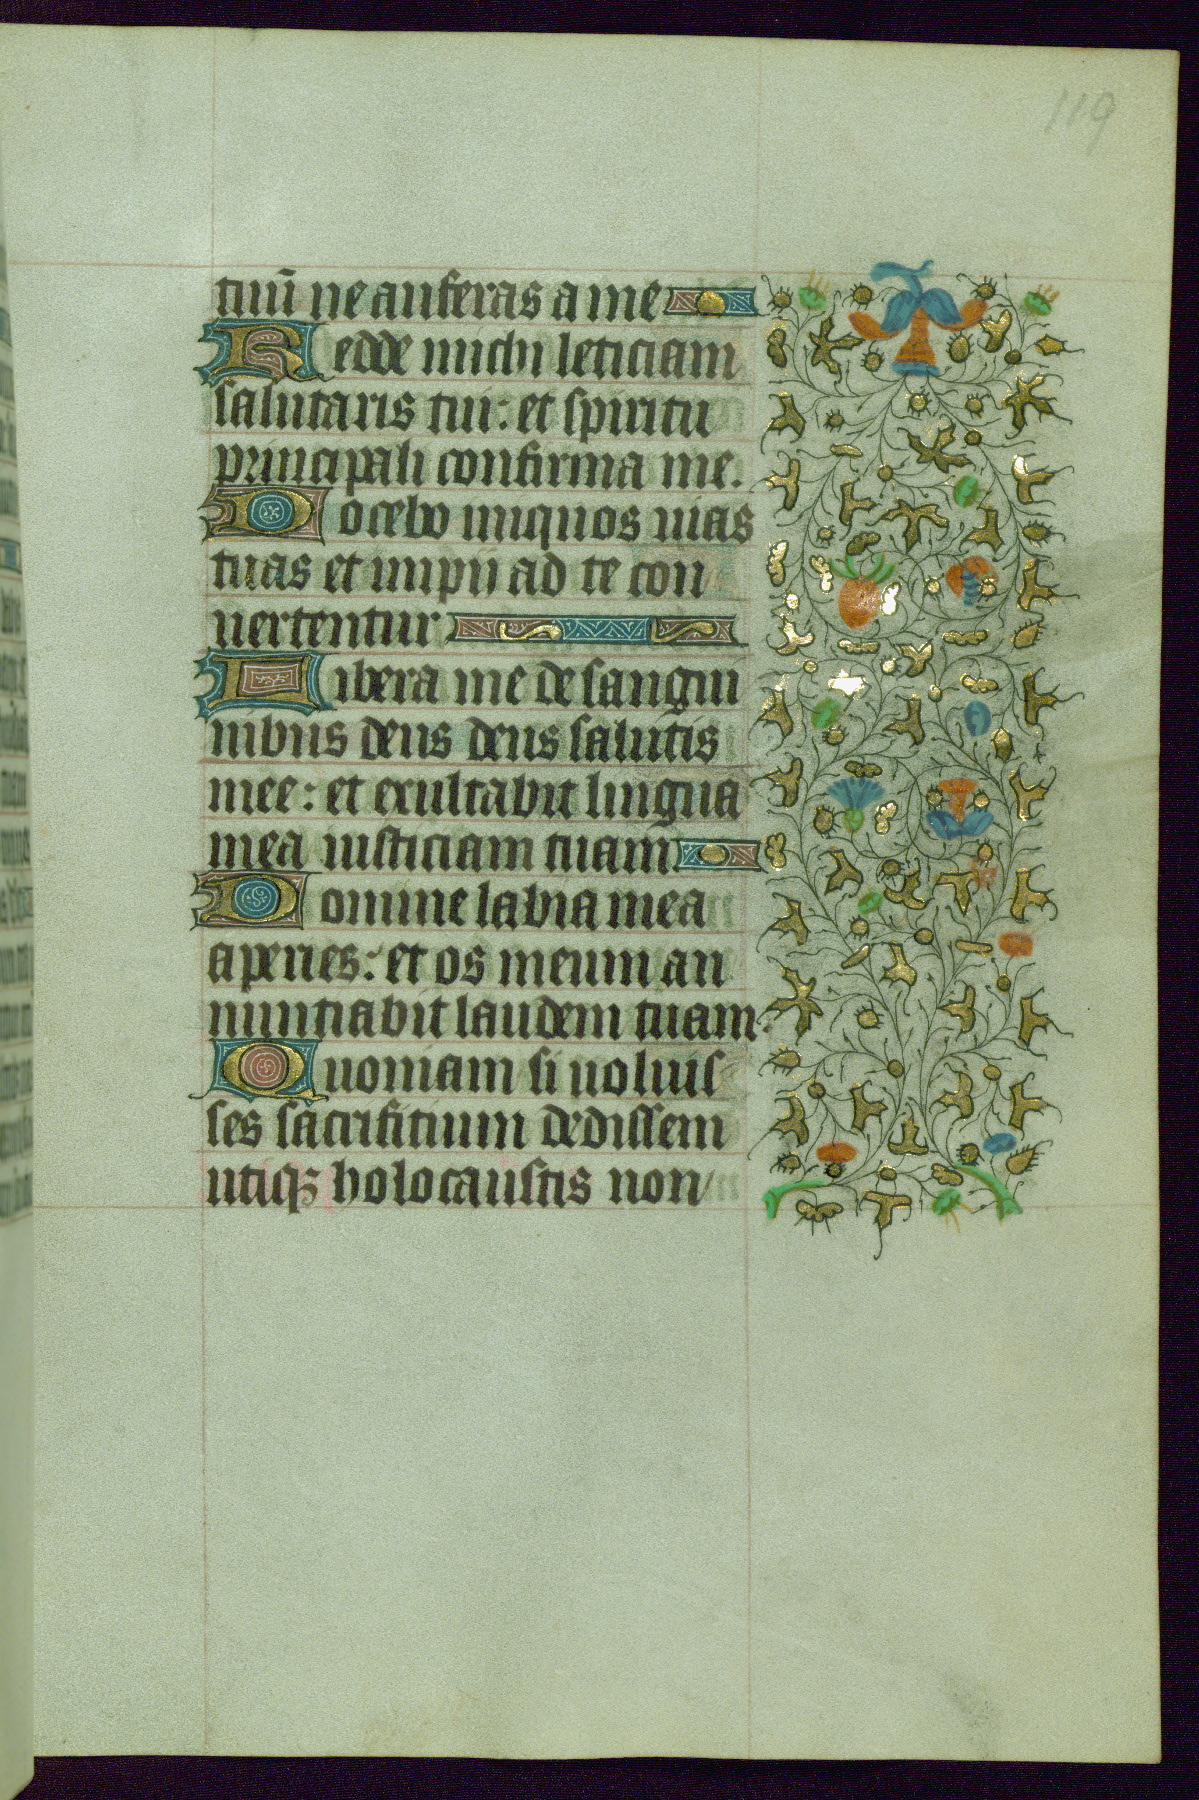 119
tuū ne auferas a me
Redde michi leticiam
salutaris tui: et spiritu
principali confirma me.
Docebo iniquos uias
tuas et impij ad te con
uertentur
Libera me de sangui
nibus deus deus salutis
mee: et exultabit lingua
mea iusticiam tuam
Domine labia mea
aperies: et os meum an
nuntiabit laudem tuam.
Quoniam si uoluis
ses sacrificium dedissem
utiqꝫ holocaustis non